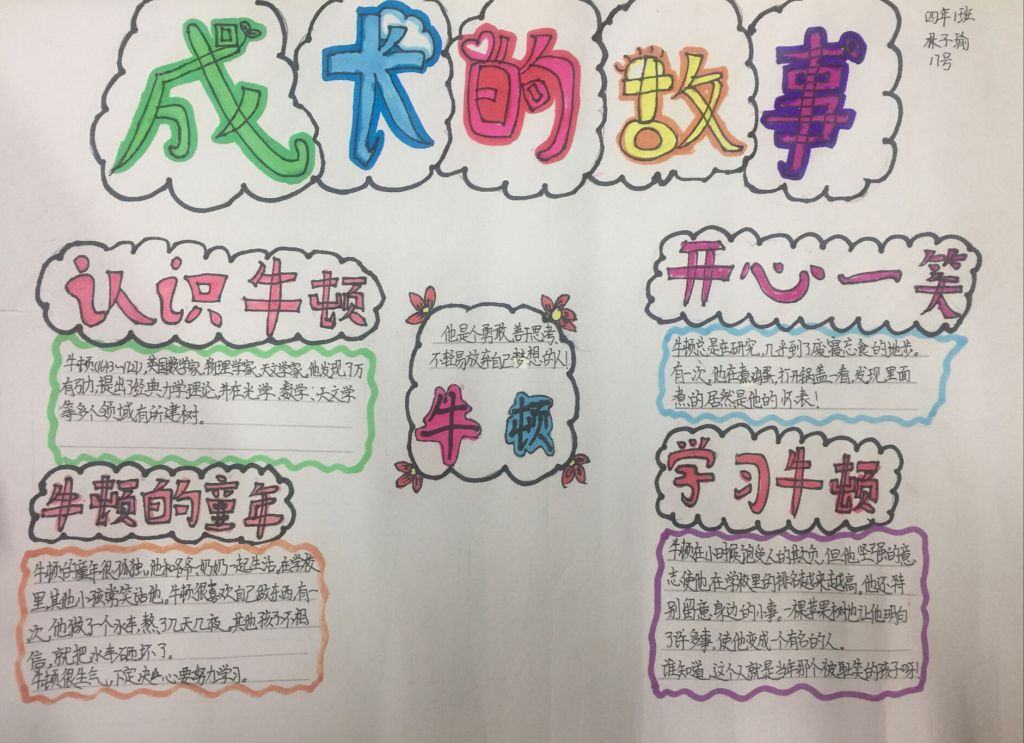 成长的故事
四年1班
林子瑜
17号
认识牛顿
牛顿(1643-1727),英国数学家、物理学家、天文学家。他发现了万
有引力,提出了经典力学理论,并在光学、数学、天文学
等多个领域有所建树。
牛顿的童年
牛顿的童年很孤独,他和爷爷奶奶一起生活,在学校
里,其他小孩常笑话他。牛顿很喜欢自己做东西,有一
次,他做了一个水车,熬了几天几夜。其他孩子不相
信,就把水车砸坏了。
牛顿很生气,下定决心要努力学习。
他是个勇敢、善于思考、
不轻易放弃自己梦想的人!
牛顿
开心一笑
牛顿总是在研究,几乎到了废寝忘食的地步。
有一次,他在煮鸡蛋,打开锅盖一看,发现里面
煮的居然是他的怀表!
学习牛顿
牛顿在小时候饱受人的欺负,但他坚强的意
志使他在学校里的排名越来越高。他还特
别留意身边的小事。一棵苹果树也让他明白
了许多事,使他变成一个有名的人。
谁知道,这个人就是当年那个被耻笑的孩子呀!